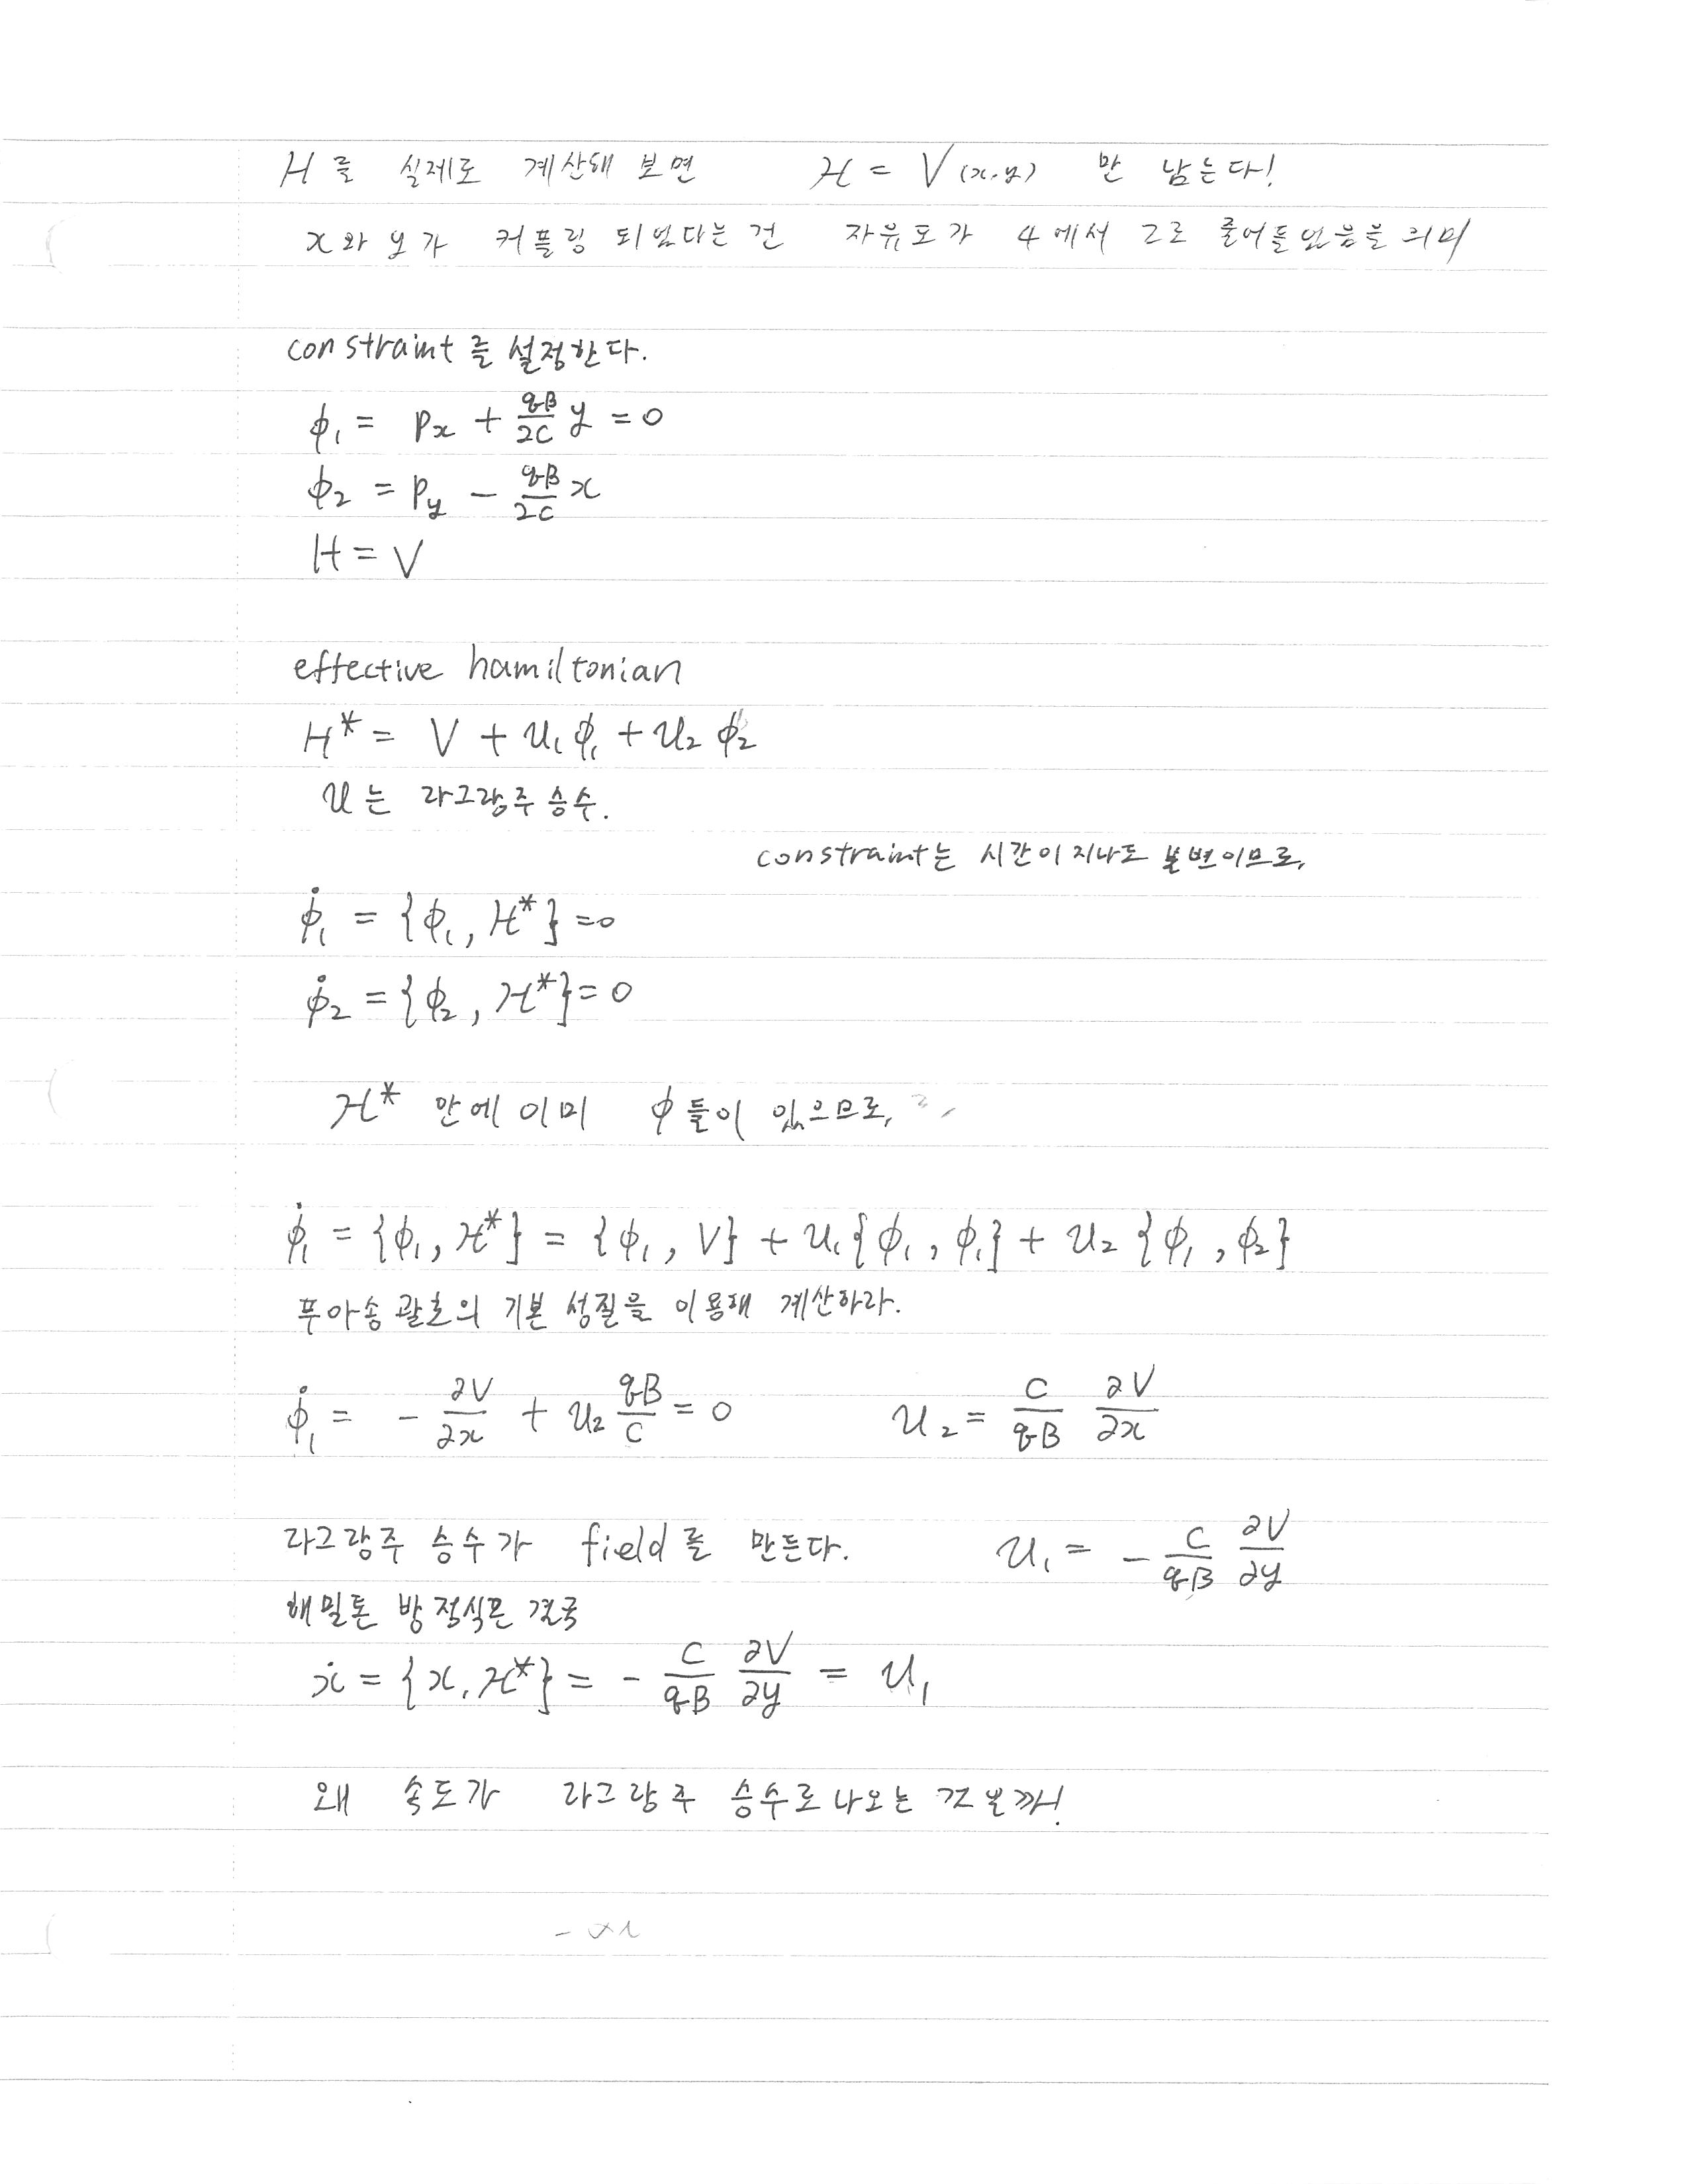 H를 실제로 계산해 보면 H = V(x,y) 만 남는다!
x와 y가 커플링 되었다는 건 자유도가 4에서 2로 줄어들었음을 의미
constraint를 설정한다.
ϕ₁ = pₓ + qB/2C y = 0
ϕ₂ = p_y − qB/2C x
H = V
effective hamiltonian
H* = V + U₁ϕ₁ + U₂ϕ₂
U는 라그랑주 승수.
constraint는 시간이 지나도 불변이므로,
ϕ̇₁ = {ϕ₁, H*} = 0
ϕ̇₂ = {ϕ₂, H*} = 0
H* 안에 이미 ϕ들이 있으므로,
ϕ̇₁ = {ϕ₁, H*} = {ϕ₁, V} + U₁{ϕ₁, ϕ₁} + U₂{ϕ₁, ϕ₂}
푸아송 괄호의 기본 성질을 이용해 계산하라.
ϕ̇₁ = − ∂V/∂x + U₂ qB/C = 0 U₂ = C/qB ∂V/∂x
라그랑주 승수가 field를 만든다. U₁ = − C/qB ∂V/∂y
해밀톤 방정식은 결국
ẋ = {x, H*} = − C/qB ∂V/∂y = U₁
왜 속도가 라그랑주 승수로 나오는 것일까!